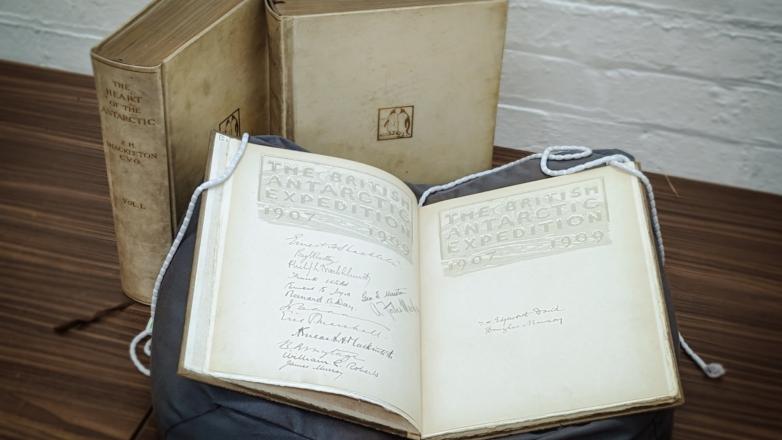 THE
HEART
OF THE
ANTARCTIC
E. H.
SHACKLETON
C.V.O.
VOL. I.
THE BRITISH
ANTARCTIC
EXPEDITION
1907 1909
Ernest H Shackleton
Frank Wild
Bernard C. Day
Eric Marshall
Aeneas A Mackintosh
William C Roberts
James Murray
THE BRITISH
ANTARCTIC
EXPEDITION
1907 1909
T. W. Edgeworth David
Douglas Mawson